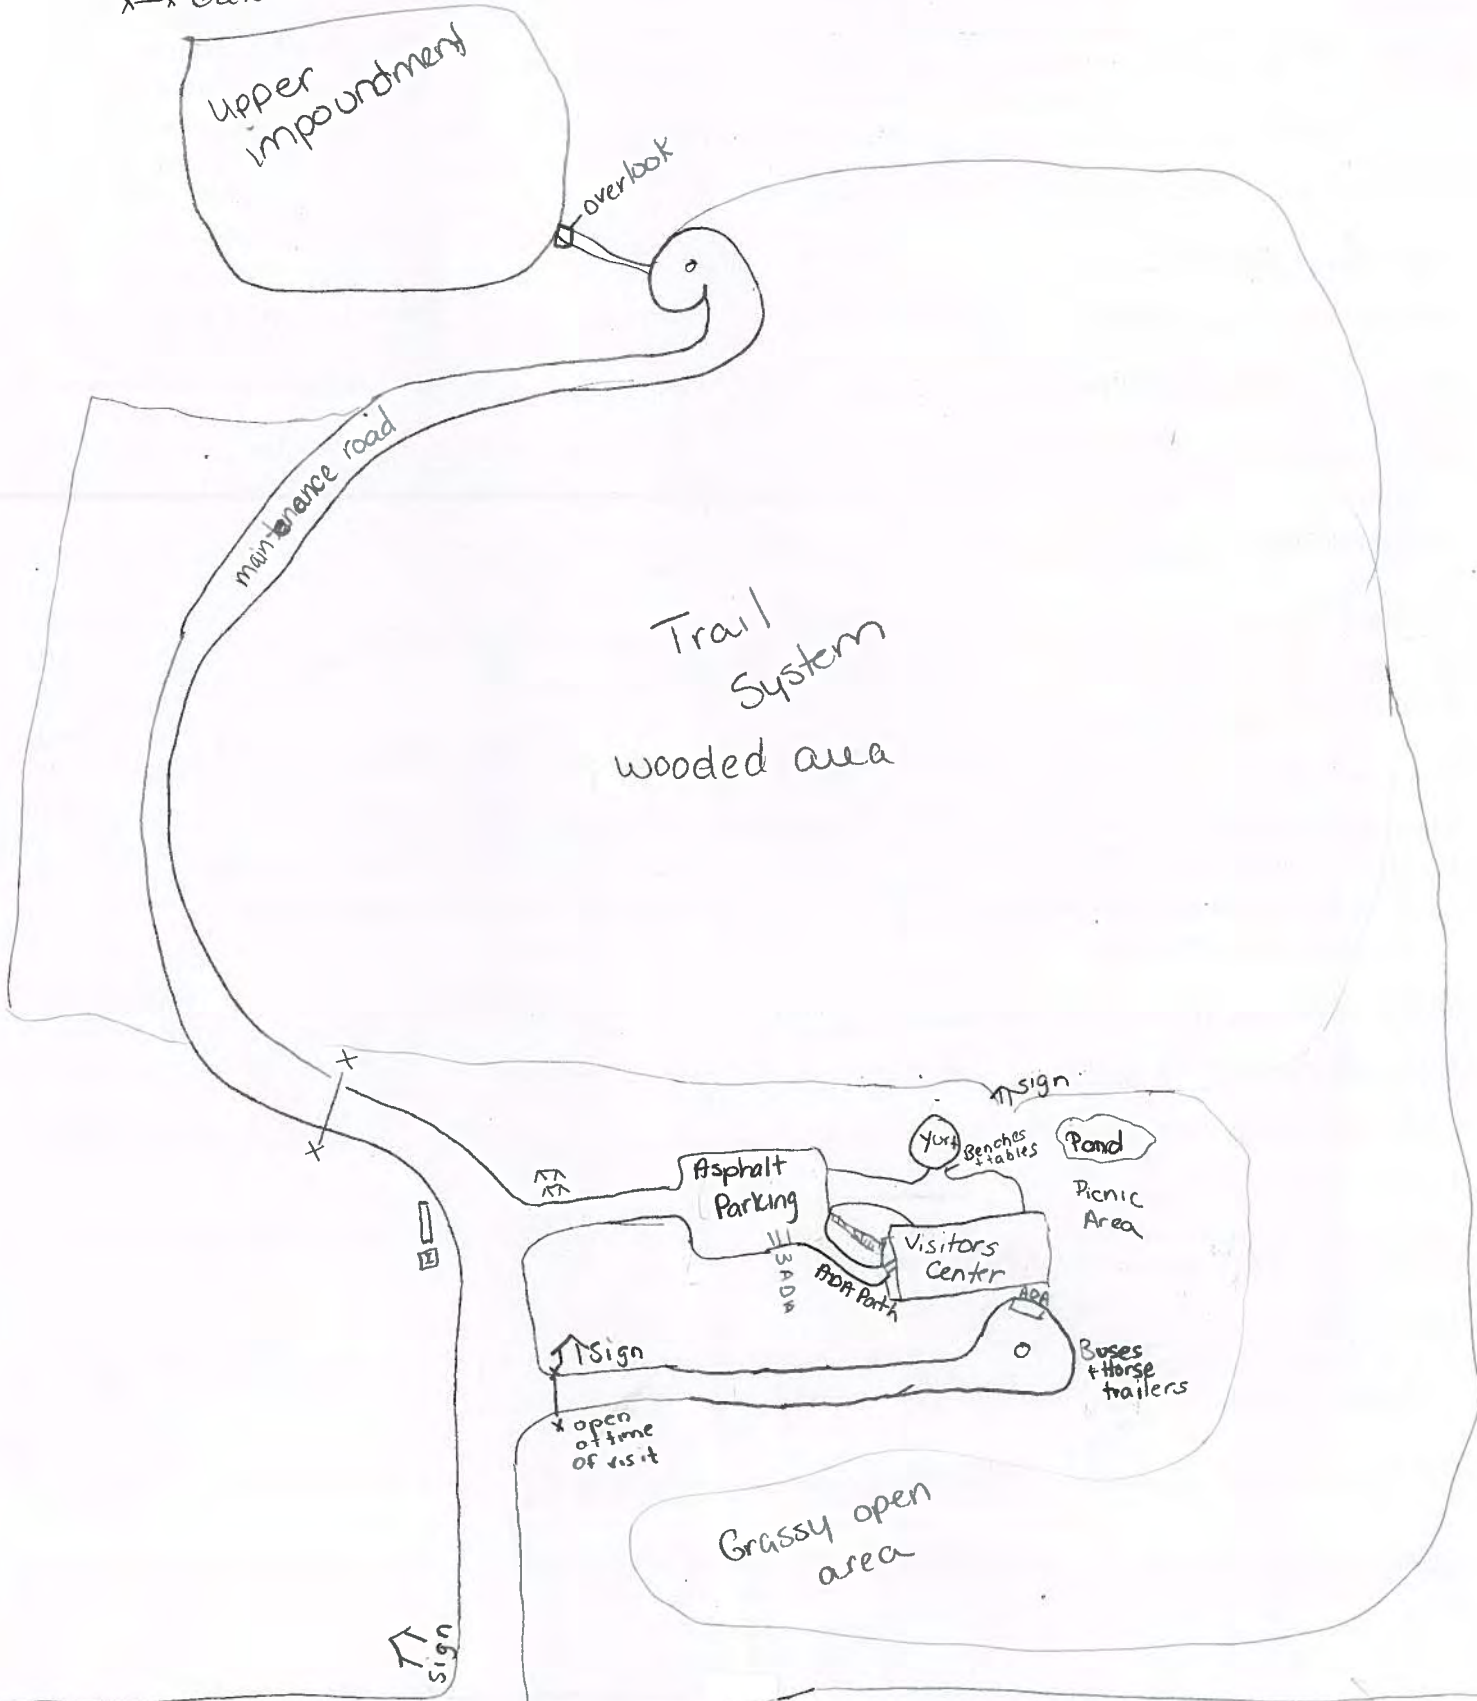 x—x
upper
impoundment
overlook
maintenance road
Trail
System
wooded area
sign
Yurt
Benches
+tables
Pond
Picnic
Area
Asphalt
Parking
3 ADA
ADA Parth
Visitors
Center
ADA
Buses
+ Horse
trailers
Sign
x open
at time
of visit
Grassy open
area
sign